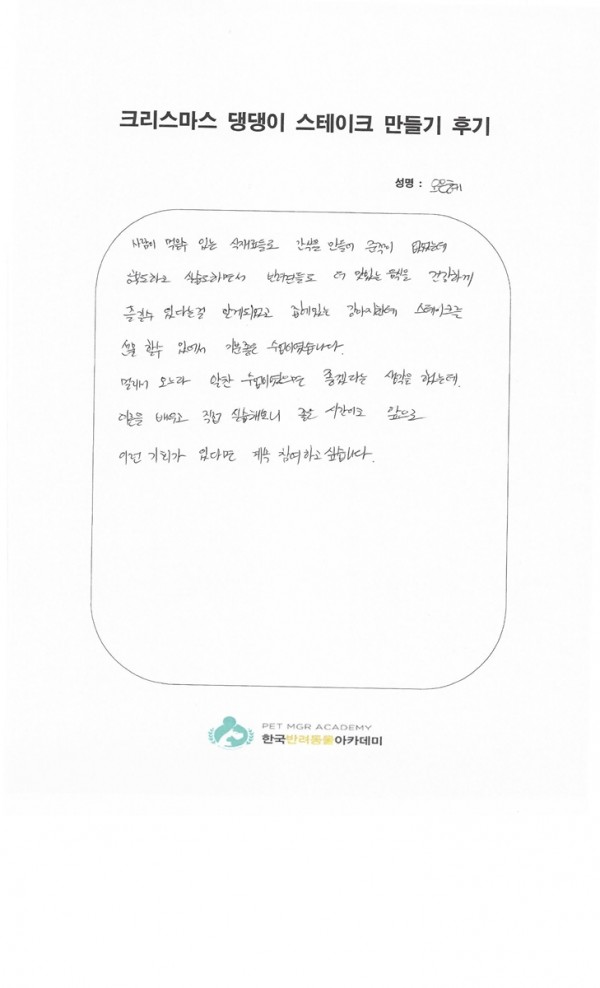 크리스마스 댕댕이 스테이크 만들기 후기
성명 : 오은혜
사람이 먹을수 있는 식재료들로 간식을 만들어 준적이 없었는데
공부도하고 실습도하면서 반려견들도 더 맛있는 음식을 건강하게
즐길수 있다는걸 알게되었고 집에있는 강아지한테 스테이크를
선물 할수 있어서 기분좋은 수업이였습니다.
멀리서 오느라 알찬 수업이였으면 좋겠다는 생각을 했는데
이론을 배우고 직접 실습해보니 좋은 시간이고 앞으로
이런 기회가 있다면 계속 참여하고싶습니다.
PET MGR ACADEMY
한국반려동물아카데미